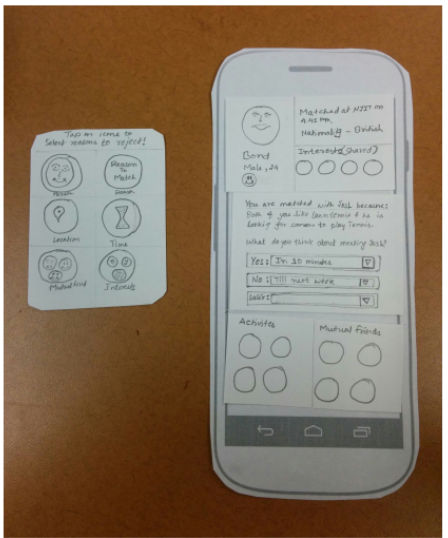 Tap on icons to
Select reasons to reject!
Person
Reason
To
Match
Reason
Location
Time
Mutual friend
Interests
Matched at NJIT on
4:45 PM,
Nationality - British
Interests (Shared)
Bond
Male, 24
You are matched with Josh because
Both of you like Lawn tennis & he is
looking for someone to play Tennis.
What do you think about meeting Josh?
Yes: In 30 minutes
No: Till next week
Later:
Activites
Mutual friends